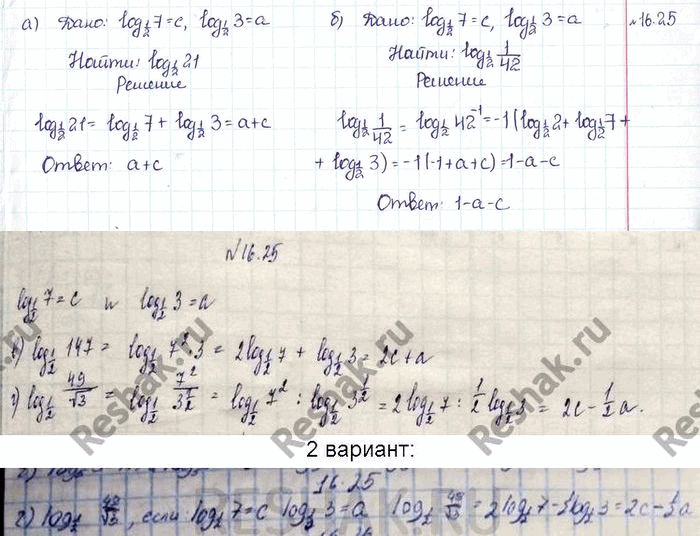 а) Дано: log_{1/2} 7=c, log_{1/2} 3=a
Найти: log_{1/2} 21
Решение
log_{1/2} 21= log_{1/2} 7+ log_{1/2} 3=a+c
Ответ: a+c
б) Дано: log_{1/2} 7=c, log_{1/2} 3=a
Найти: log_{1/2} 1/42
Решение
log_{1/2} 1/42 = log_{1/2} 42^{-1}=-1(log_{1/2} 2+ log_{1/2} 7+
+ log_{1/2} 3)=-1(-1+a+c)=1-a-c
Ответ: 1-a-c
№16.25
№16.25
log_{1/2} 7=c и log_{1/2} 3=a
в) log_{1/2} 147 = log_{1/2} 7²·3 = 2log_{1/2} 7 + log_{1/2} 3= 2c+a
г) log_{1/2} 49/√3 = log_{1/2} 7²/3^{1/2} = log_{1/2} 7² : log_{1/2} 3^{1/2} = 2log_{1/2} 7 : 1/2 log_{1/2} 3 = 2c-1/2 a.
Reshak.ru
Reshak.ru
Reshak.ru
2 вариант:
16.25
г) log_{1/2} 49/√3, если log_{1/2} 7=c log_{1/2} 3=a log_{1/2} 49/√3 = 2log_{1/2} 7-1/2 log_{1/2} 3=2c-1/2 a
RESHAK.RU